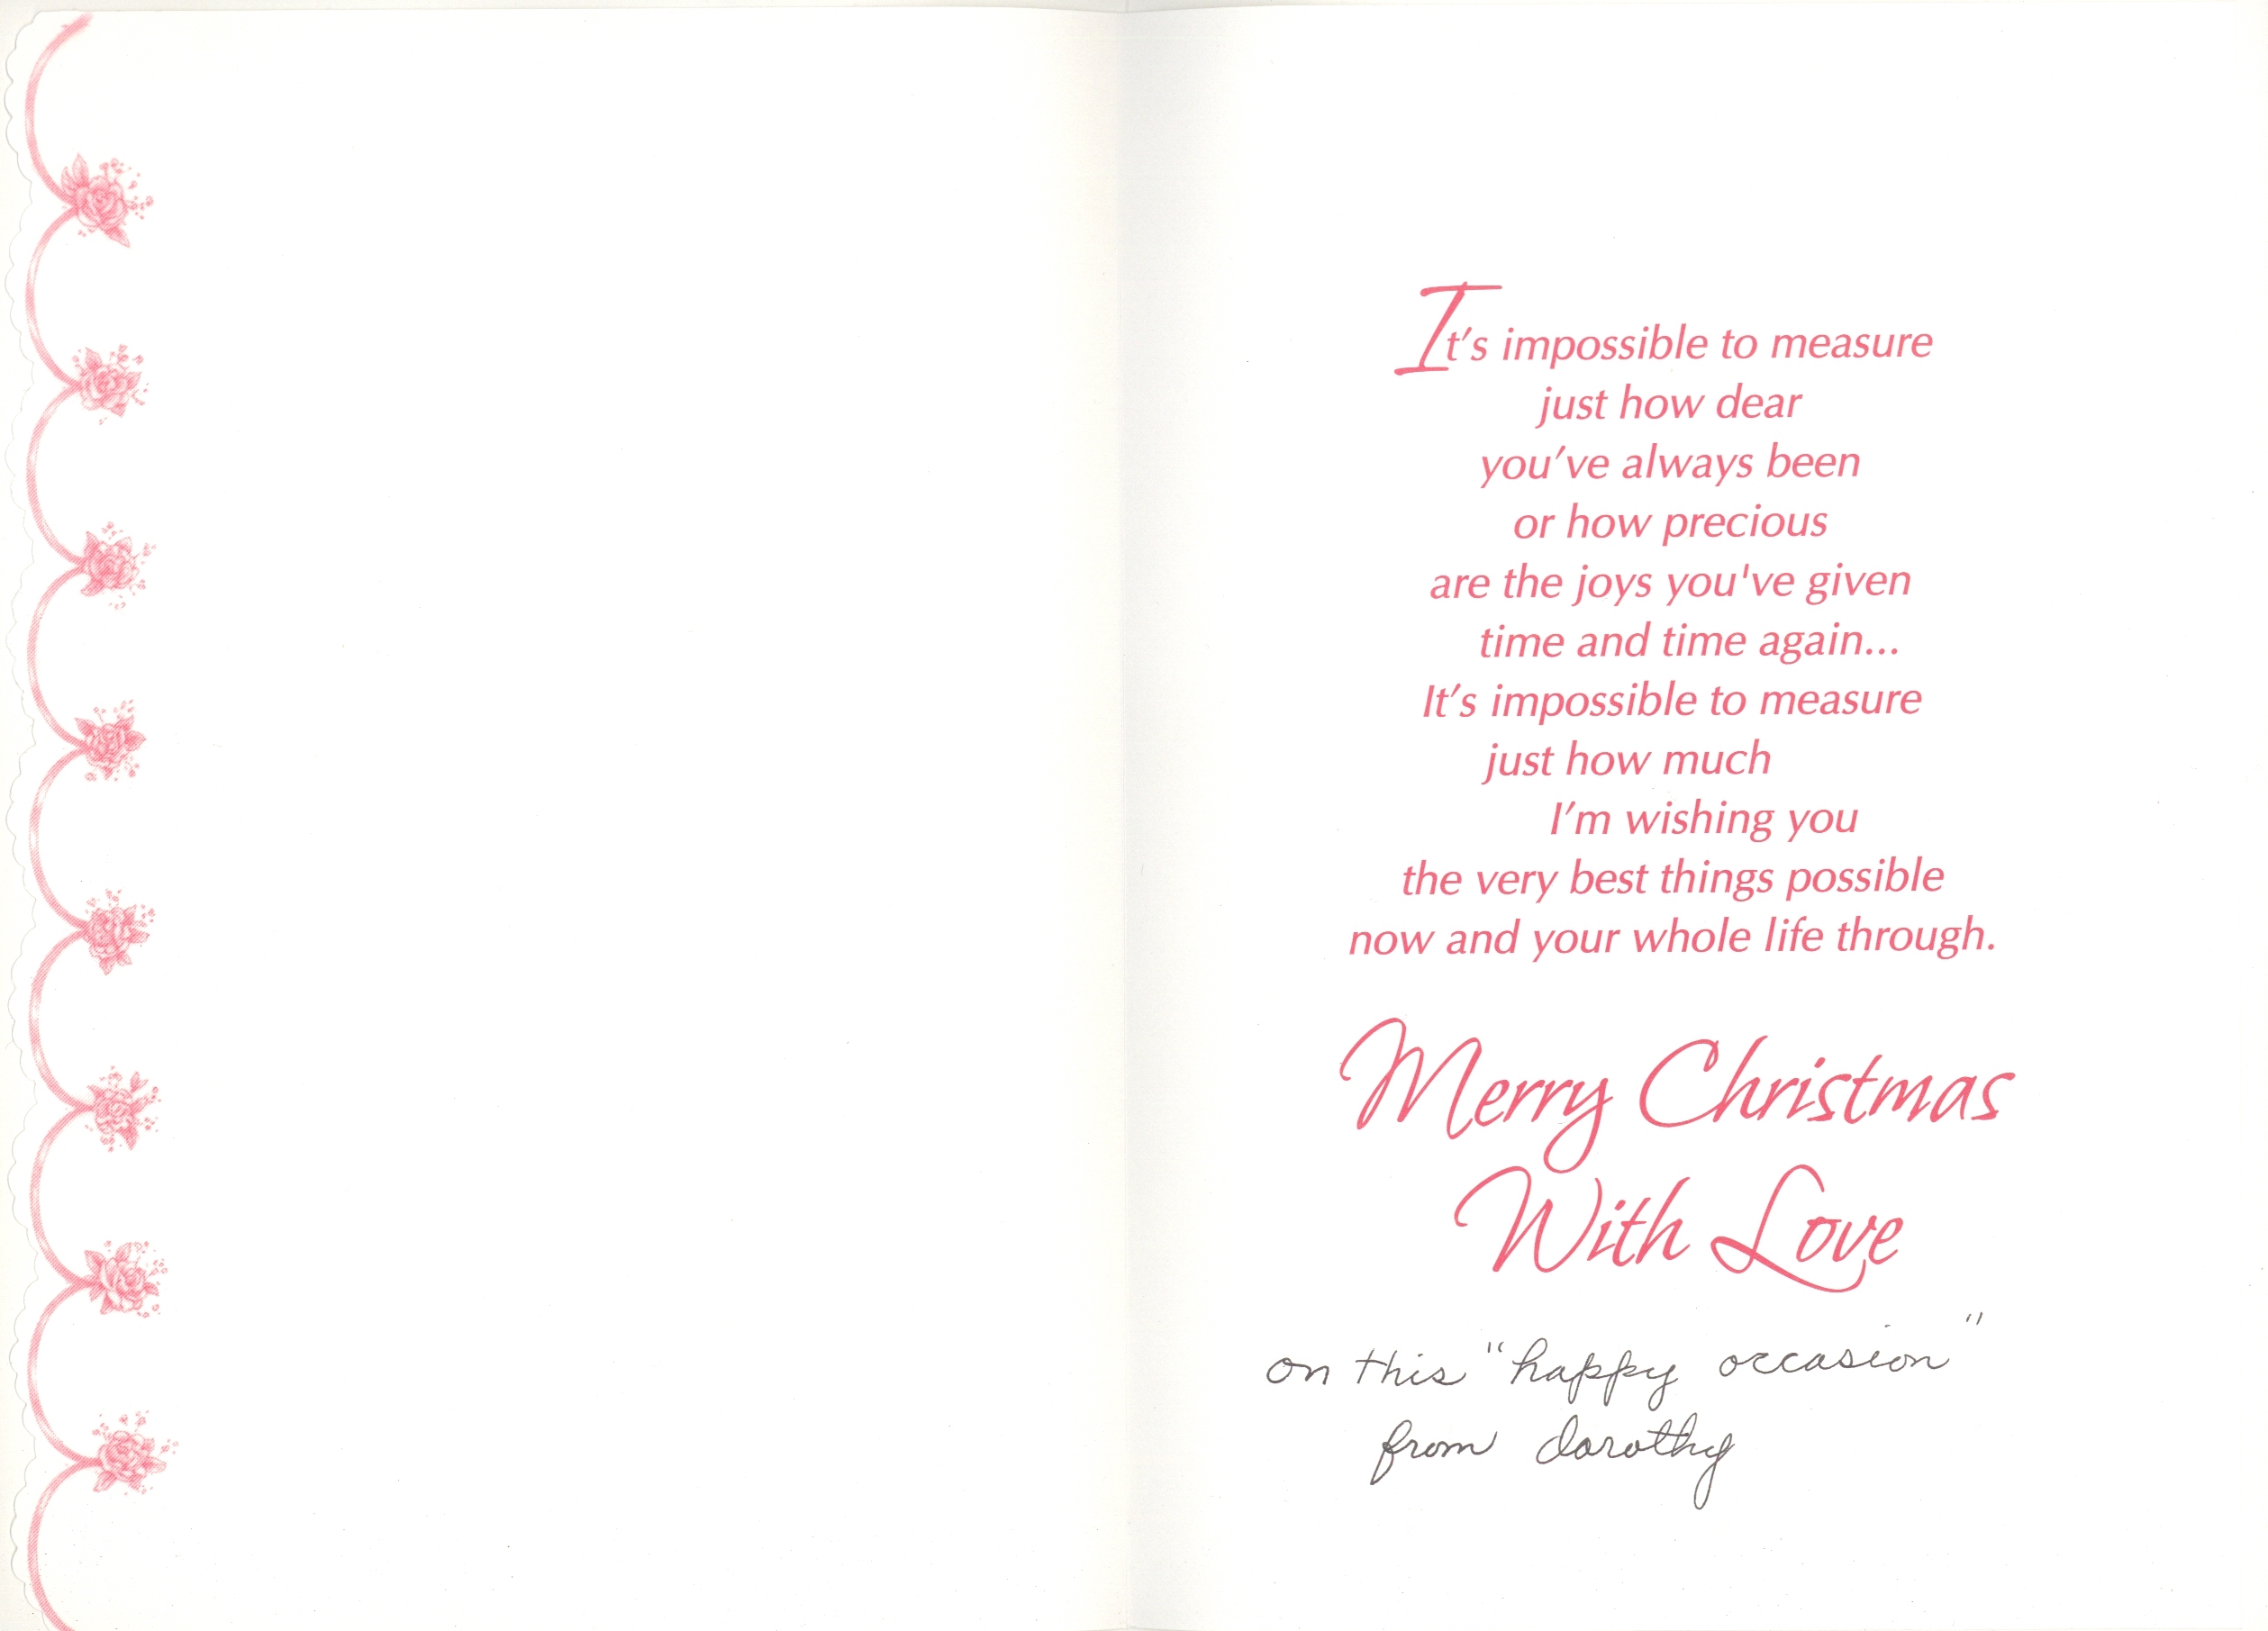 It's impossible to measure
just how dear
you've always been
or how precious
are the joys you've given
time and time again...
It's impossible to measure
just how much
I'm wishing you
the very best things possible
now and your whole life through.
Merry Christmas
With Love
on this "happy occasion"
from dorothy